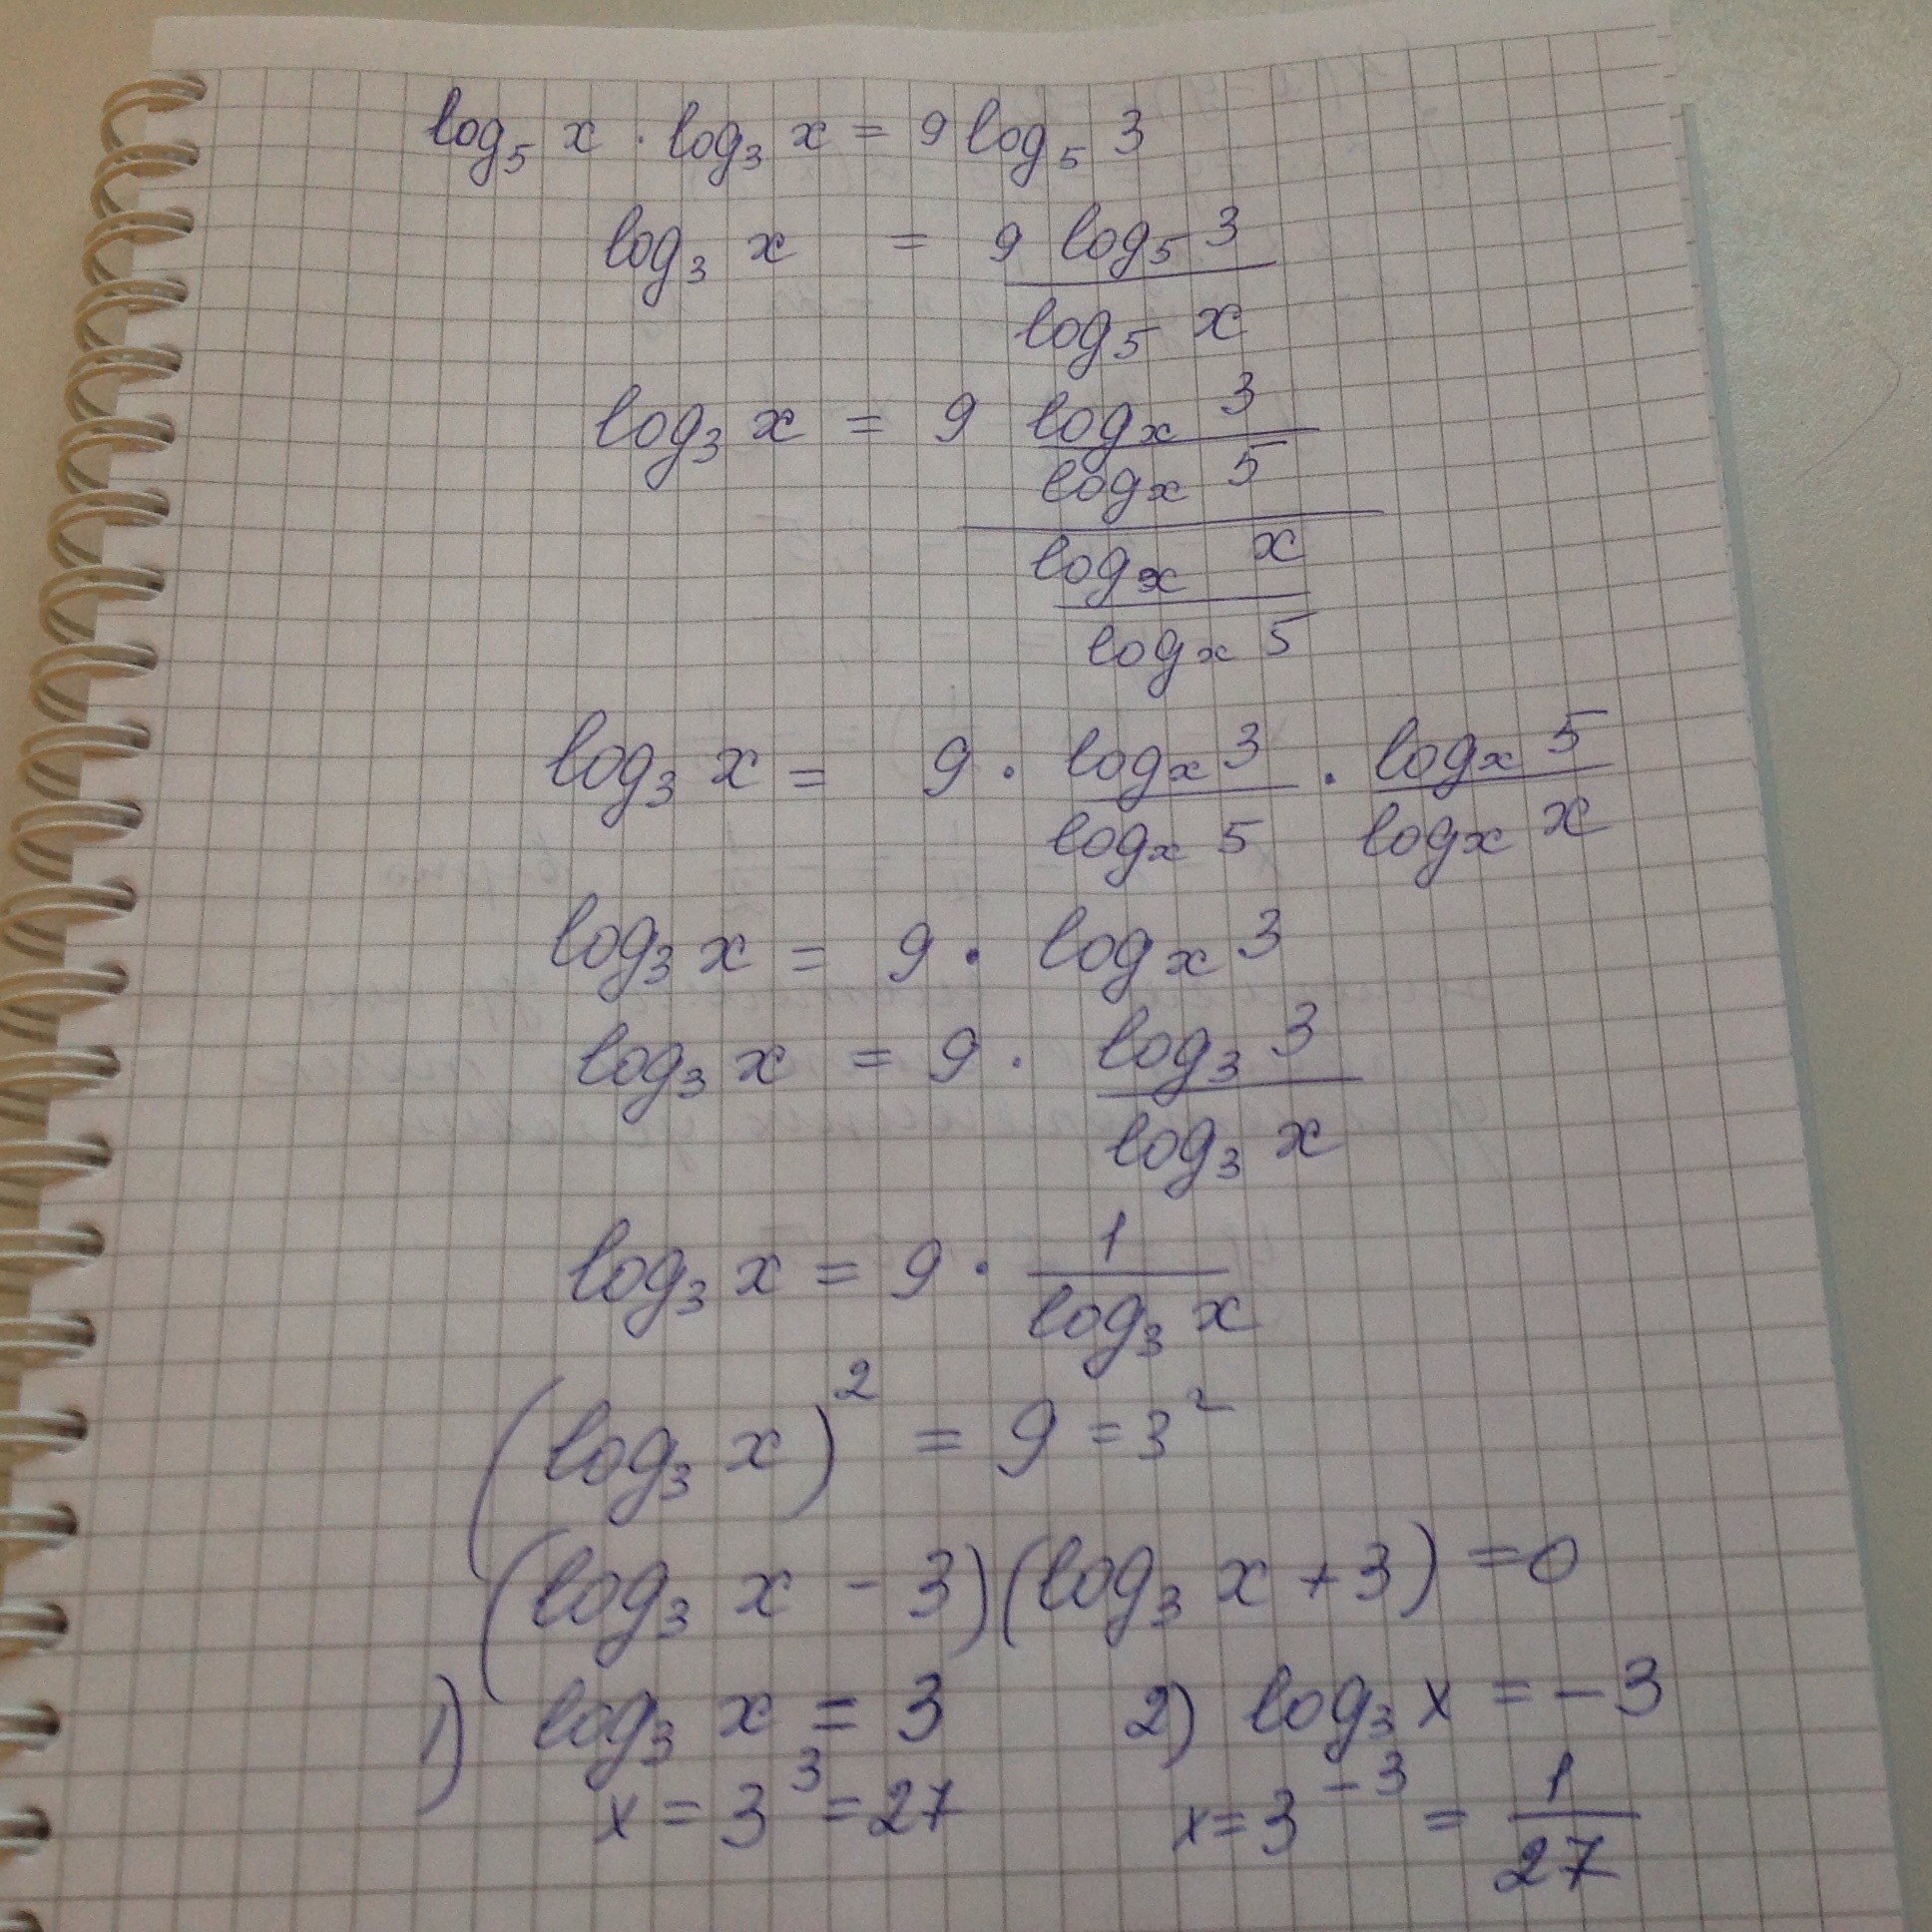 log₅ x · log₃ x = 9 log₅ 3
log₃ x = 9 log₅ 3 / log₅ x
log₃ x = 9 (logₓ 3 / logₓ 5) / (logₓ x / logₓ 5)
log₃ x = 9 · logₓ 3 / logₓ 5 · logₓ 5 / logₓ x
log₃ x = 9 · logₓ 3
log₃ x = 9 · log₃ 3 / log₃ x
log₃ x = 9 · 1 / log₃ x
(log₃ x)² = 9 = 3²
(log₃ x - 3)(log₃ x + 3) = 0
1) log₃ x = 3 2) log₃ x = -3
x = 3³ = 27 x = 3⁻³ = 1/27